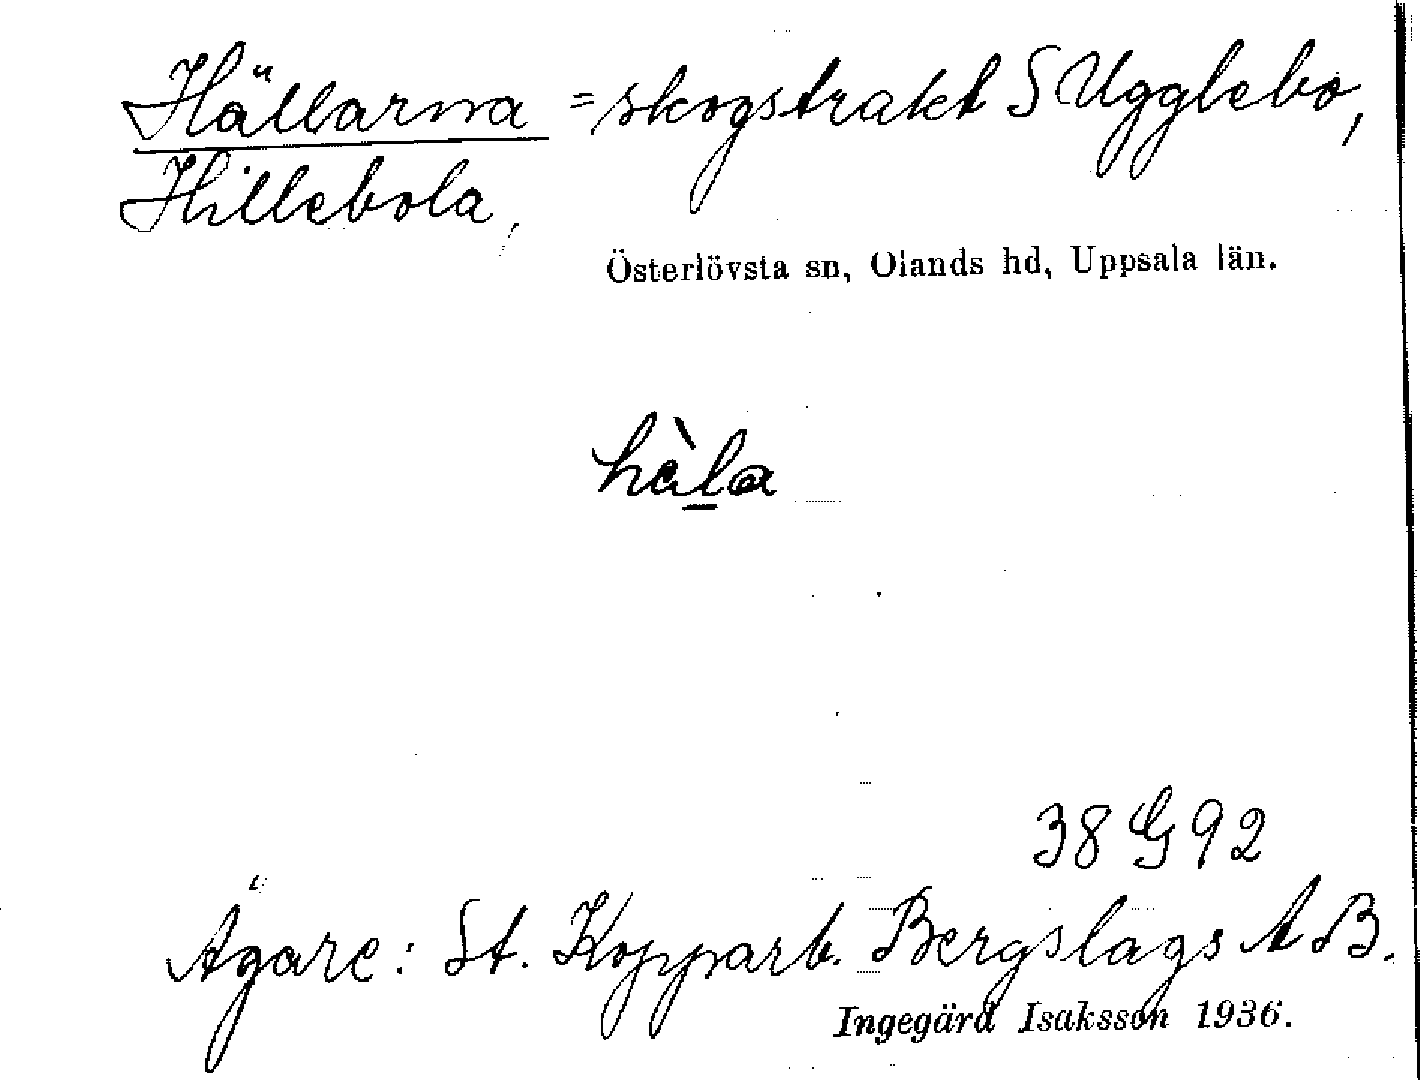 Hällarna = skogstrakt S Ugglebo,
Hillebola,
Österlövsta sn, Olands hd, Uppsala län.
hàl̲a
38 G 92
Ägare: St. Kopparb. Bergslags A B.
Ingegärd Isaksson 1936.